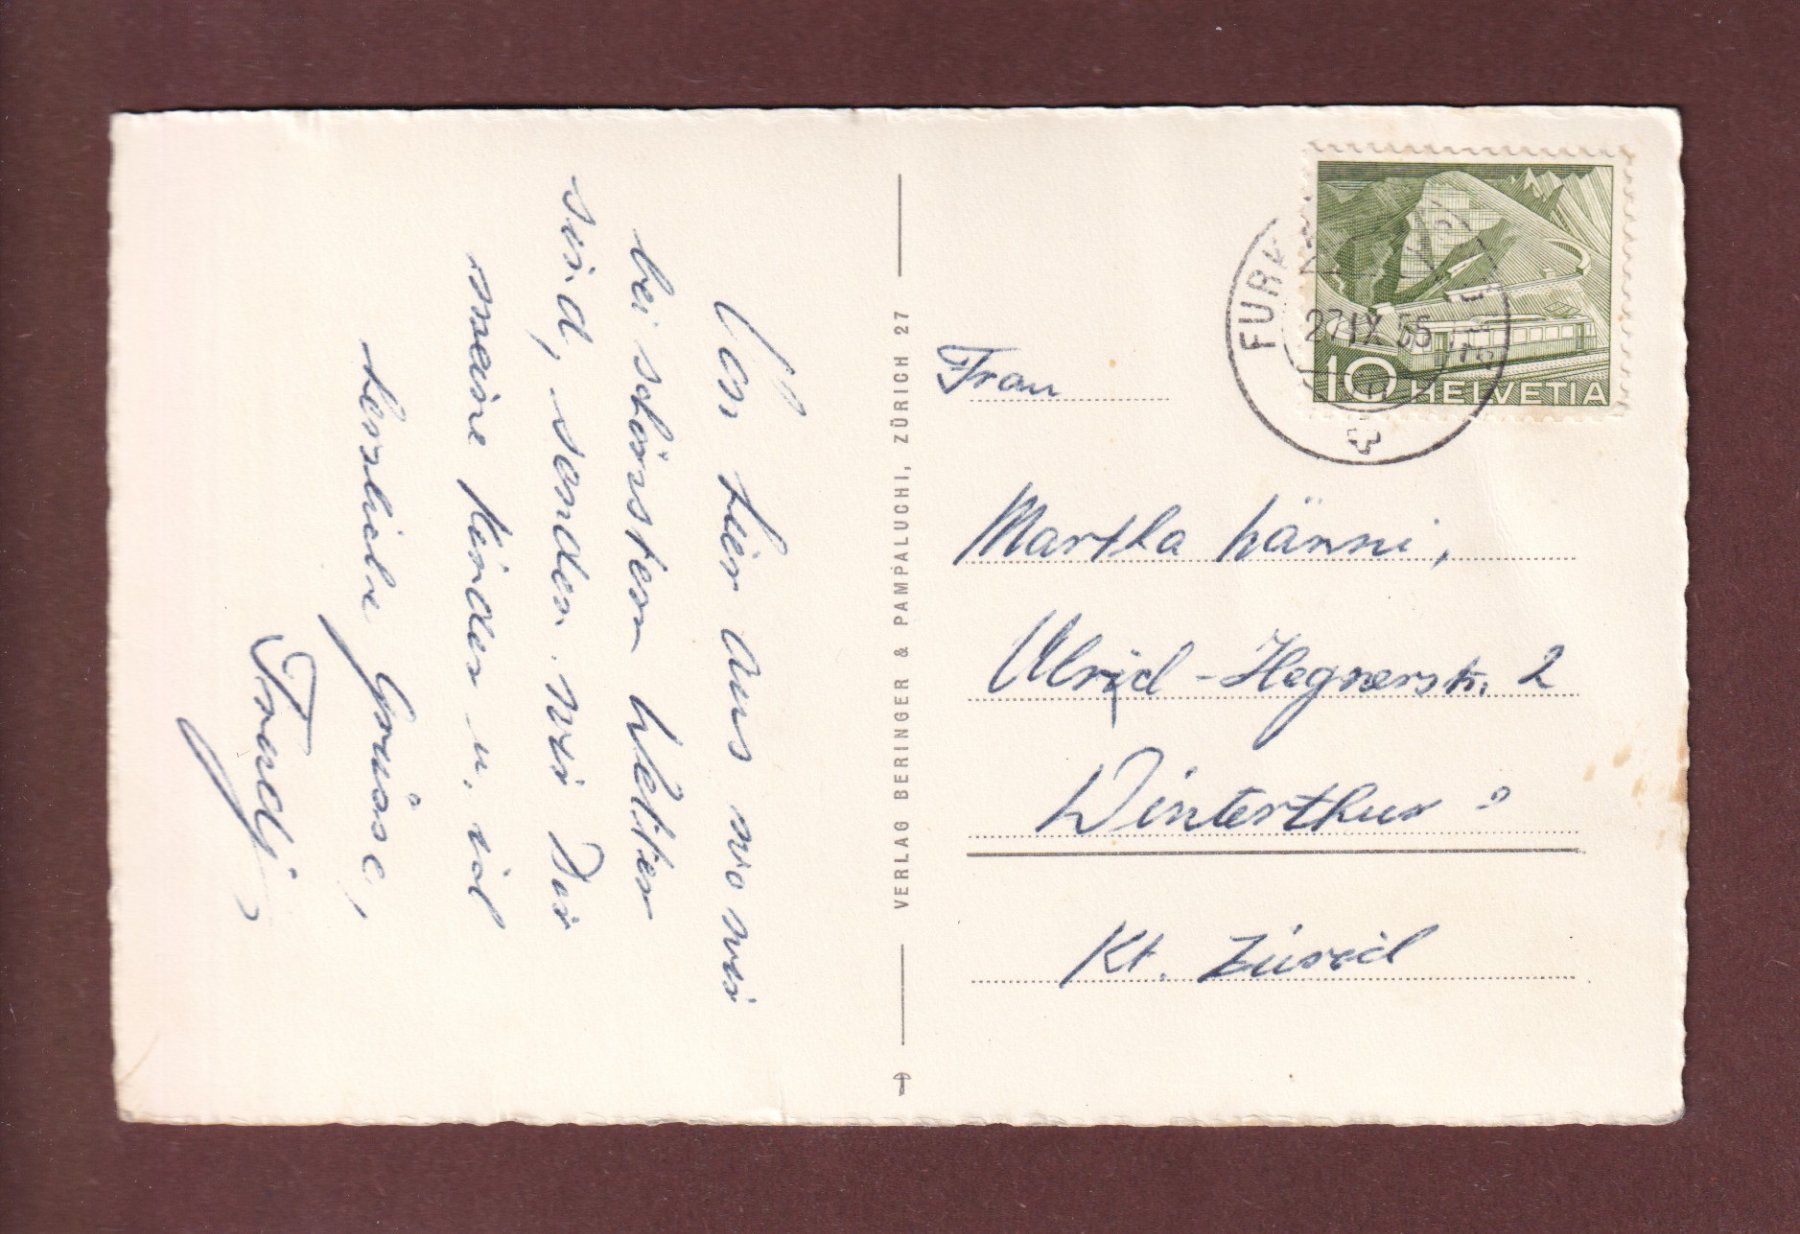 Von hier aus wo wir
bei schönstem Wetter
sind, senden wir Dir
meine Kinder u. ich
herzliche Grüsse,
Trudj
VERLAG BERINGER & PAMPALUCHI, ZÜRICH 27
FURK
27 IX
10 HELVETIA
Frau
Martha Hänni,
Ulrich-Hegnerstr. 2
Winterthur
Kt. Zürich